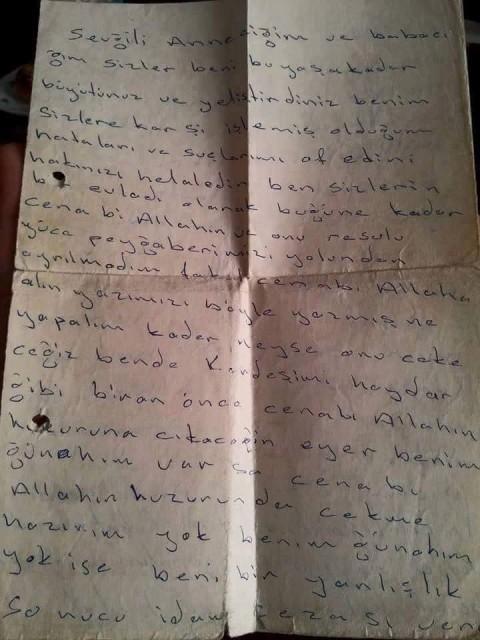 Sevğili Anneciğim ve babacı
ğım sizler beni bu yaşa kadar
büyütünüz ve yetiştirdiniz benim
sizlere karşı işlemiş olduğum
hataları ve suçlarımı af edini
hakınızı helaledin ben sizlerin
bir evladı olarak buğüne kadar
cena bi Allahın ve onu resulu
yüce peyğaberimizi yolundan
ayrılmadım fakat cenabı Allaha
alın yazımızı böyle yazmış ne
yapalım kader neyse onu çeke
ceğiz bende Kardeşim haydar
ğibi biran önce cenabı Allahın
huzuruna cıkacağın eyer benim
ğünahım var sa cena bı
Allahın huzurunda cekme
hazırım yok benim ğünahım
yok ise beni bir yanlışlık
so nucu idam ceza sı ver